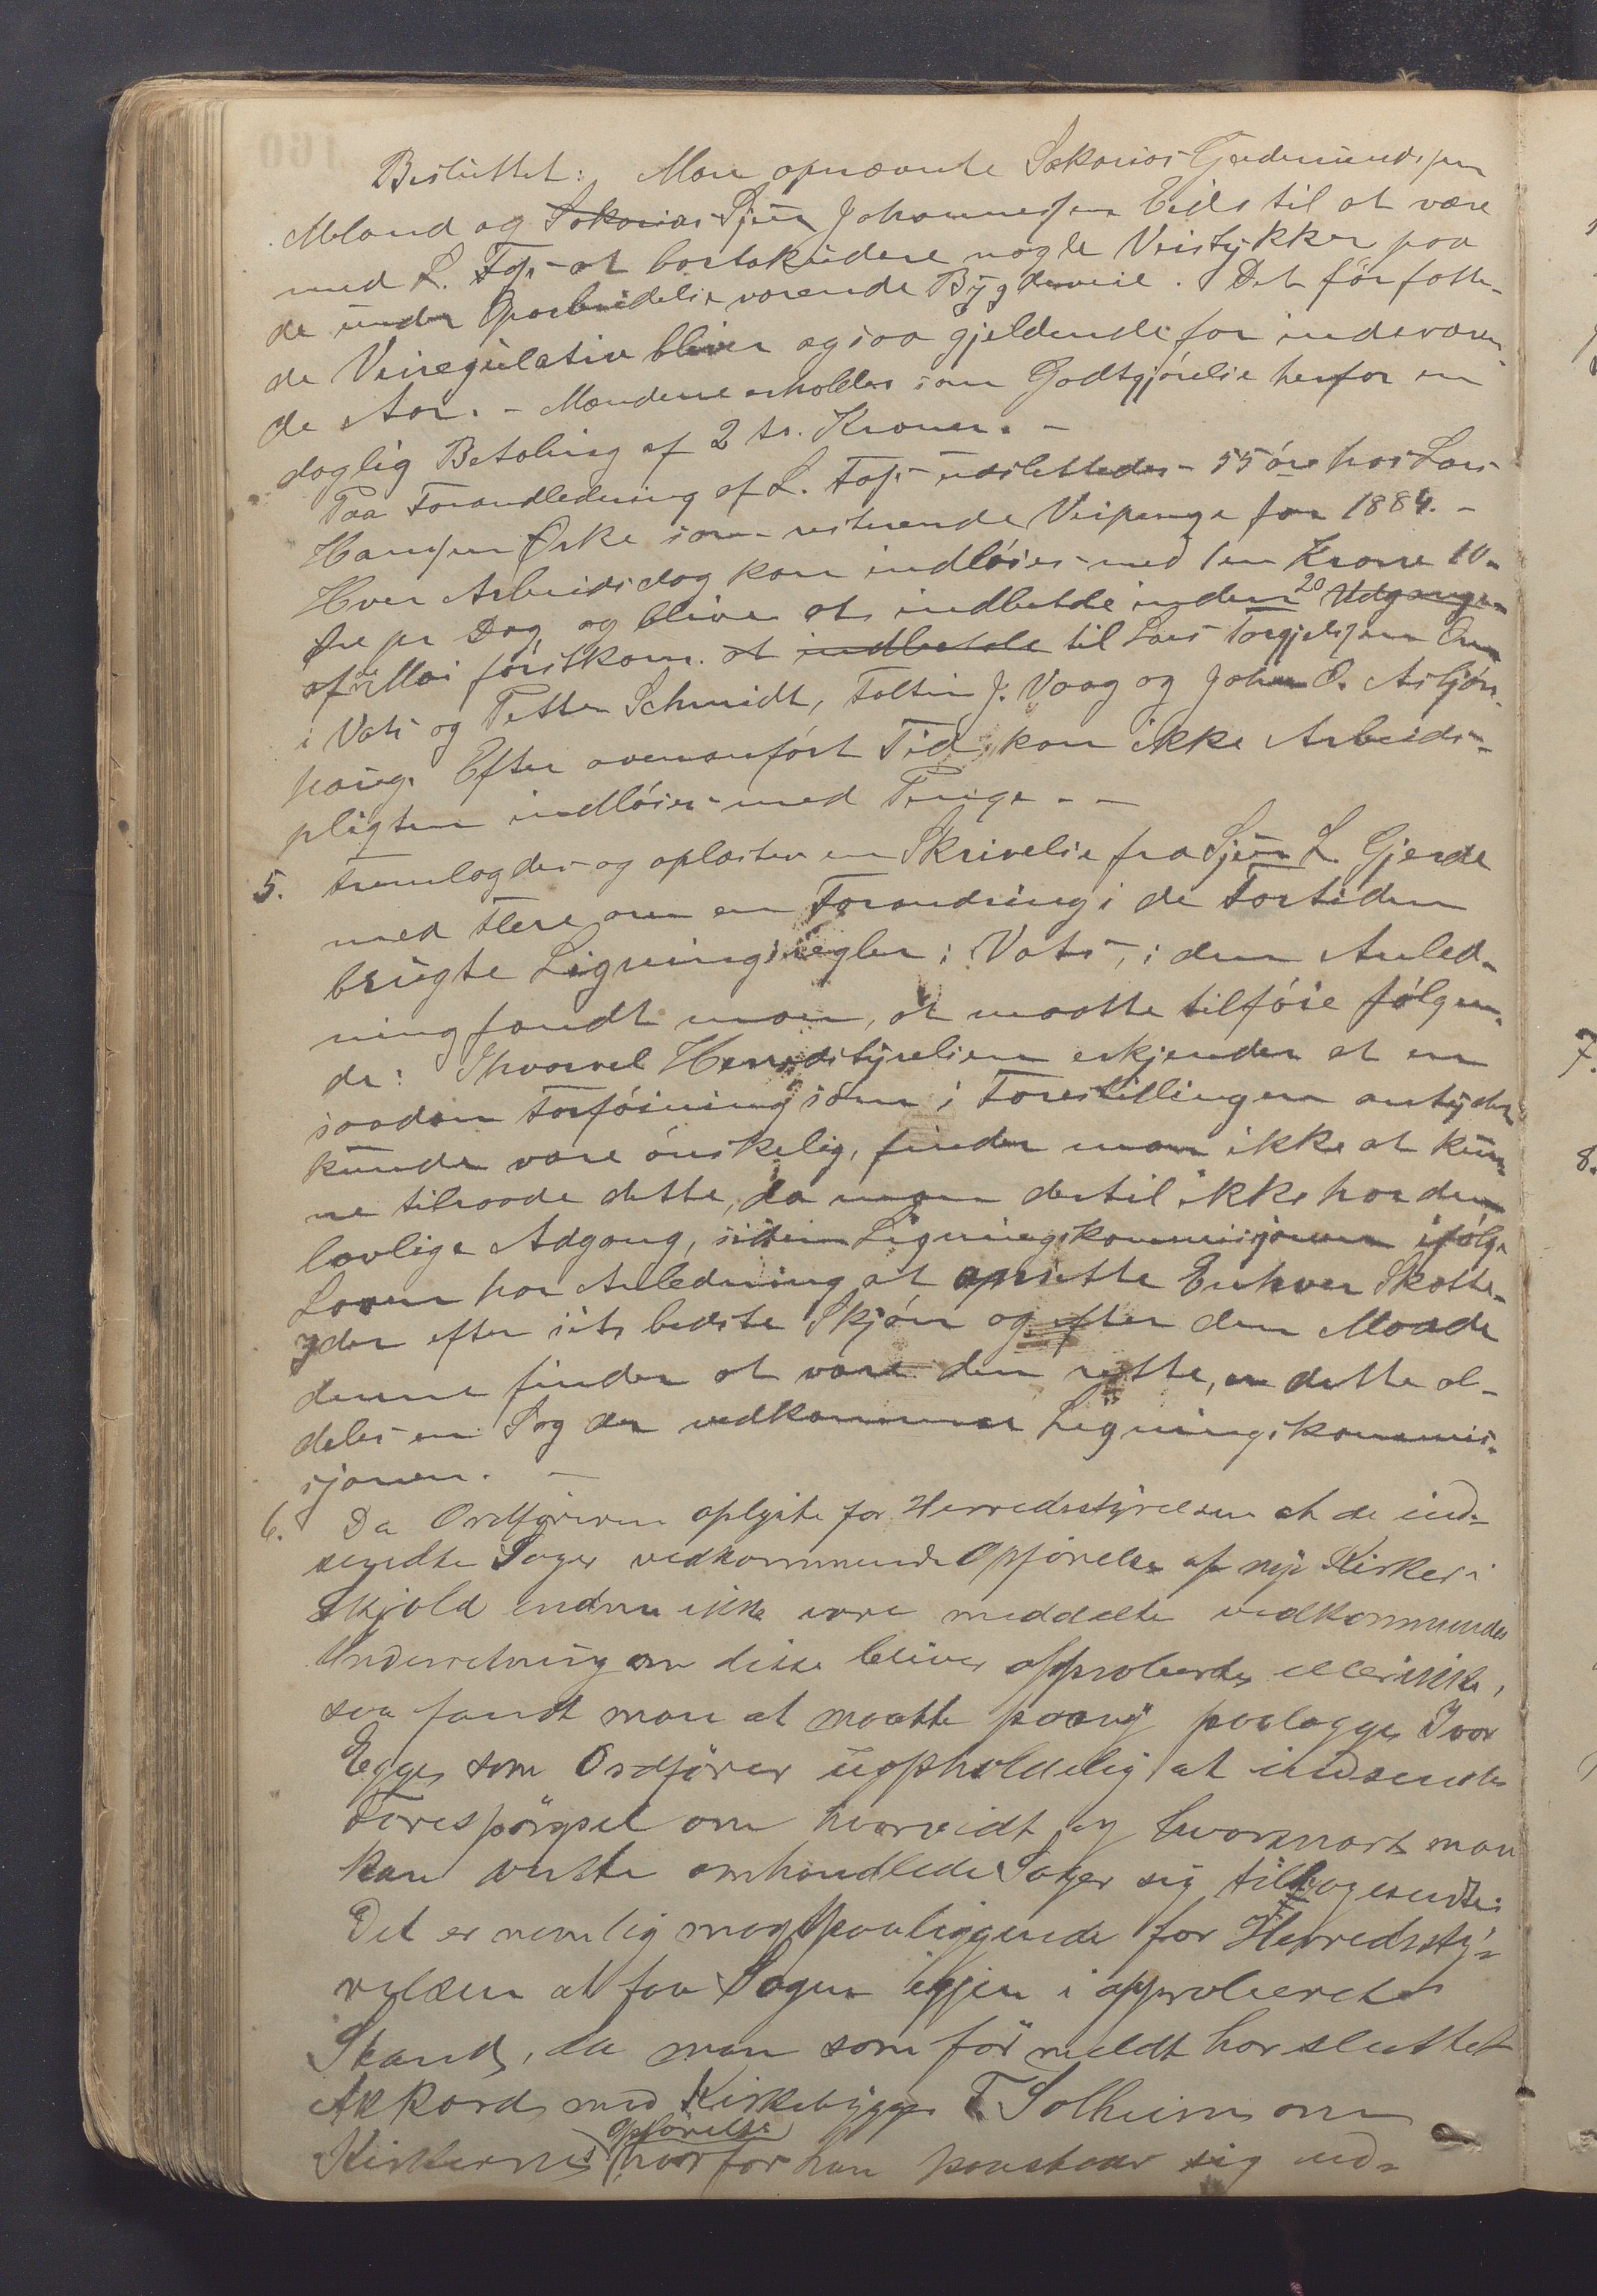 Besluttet: Man opnævnte Sakarias Gudmundsen
Meland og Sakarias Sjur Johannessen Eids til at være
med L. Fos at bortakudere nogle Veistykker paa
de under Oparbeidelse værende Bygdeveie. Det før fatte-
de Veiregulativ bliver ogsaa gjeldende for indeværen-
de Aar. - Mændene erholder som Godtgjørelse herfor en
daglig Betaling af 2 to Kroner. -
Paa Foranledning af L. Fos udslettedes 55 øre hos Lars
Hansen Ørke som resterende Veipenge for 1884. -
Hver Arbeidsdag kan indløses med 1 en Krone 10-
Øre pr Dag, og bliver at indbetale inden 20 Udgangen
af Mai førstkom. at indbetale til Lars Torgjelsen
i Vats og Petter Schmidt, Foltin J. Vaag og Johan O. Asbjørn
haug. Efter ovenanført Tid kan ikke Arbeids-
pligten indløses med Penge. -
5. Fremlagdes og oplæstes en Skrivelse fra Sjur L. Gjerde
med Flere om en Forandring i de Fortiden
brugte Ligningsregler i Vats, i den Anled-
ning fandt man, at maatte tilføie følgen-
de: Ihvorvel Herredstyrelsen erkjender at en
saadan Forføining som i Forestillingen antydes
kunde være ønskelig, finder man ikke at kun-
ne tilraade dette, da man dertil ikke har den
lovlige Adgang, siden Ligningskommisjonen ifølge
Loven har Anledning at ansætte Enhver Skatte-
yder efter sit bedste Skjøn og efter den Maade
denne finder at være den rette, er dette al-
deles en Sag der vedkommer Ligningskommis-
sjonen. -
6. Da Ordføreren oplyste for Herredsstyrelsen at de ind-
sendte Sager vedkommende Opførelse af nye Kirker i
Skjold endnu ikke være meddelte vedkommende
Underretning om disse bliver approberte eller ikke,
saa fandt man at maatte paany paalægge Ivar
Egge som Ordfører uopholdelig at indsende
Forespørgsel om hvorvidt og hvornaar man
kan vente omhandlede Sager sig tilbagesendte.
Det er nemlig magtpaaliggende for Herredssty-
relsen at faa Sagen igjen i approberet
Stand, da man som før meldt har sluttet
Akkord med Kirkebygger T Solheim om
Kirkernes opførelse hvorfor han paastaar sig ud-